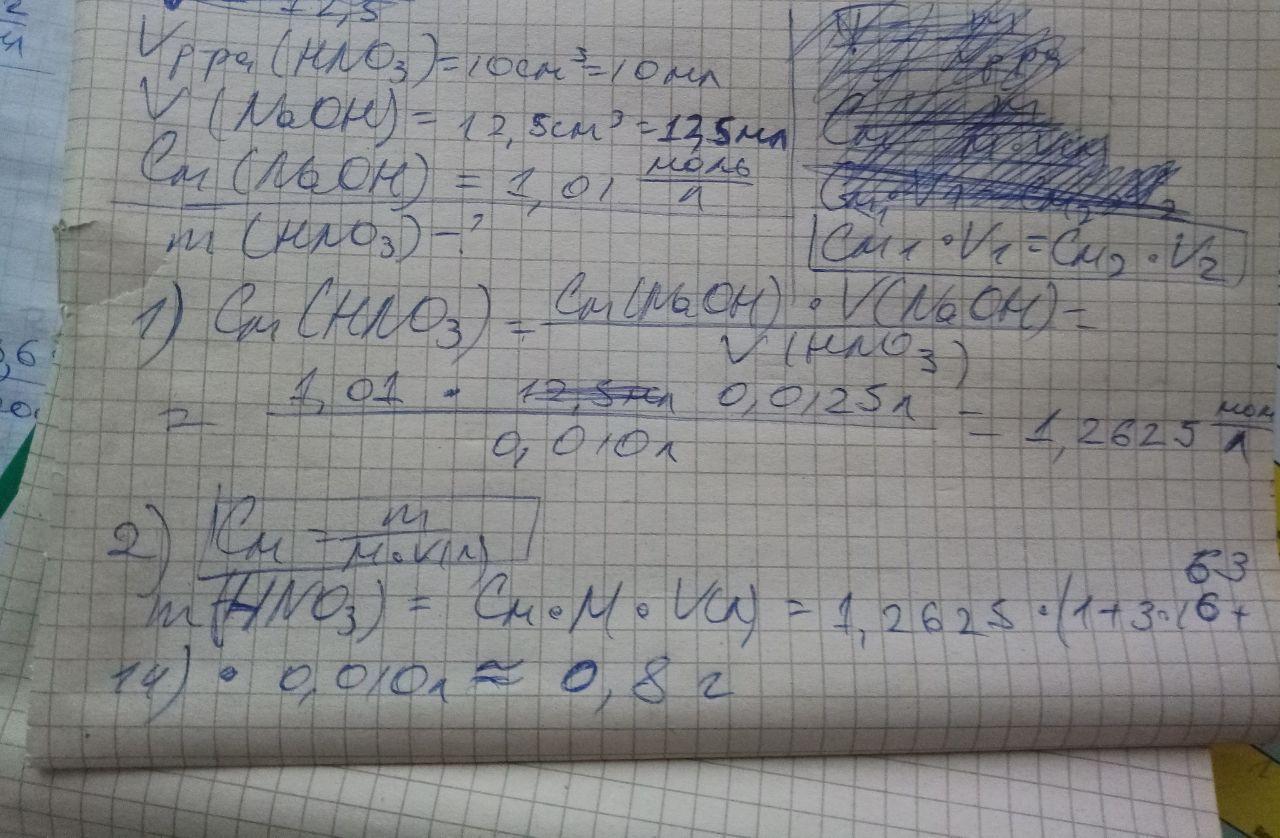 12,5
Vр-ра(HNO₃)=10см³=10мл
V(NaOH)=12,5см³=12,5мл
Cм(NaOH)=1,01 моль/л
m(HNO₃)-?
Cм₁·V₁=Cм₂·V₂
1) Cм(HNO₃)= Cм(NaOH)·V(NaOH)/V(HNO₃) =
= 1,01 · 0,0125л / 0,010л = 1,2625 мол/л
2) Cм = m/M·V(л)
63
m(HNO₃) = Cм·M·V(л) = 1,2625·(1+3·16+
14)·0,010л ≈ 0,8 г